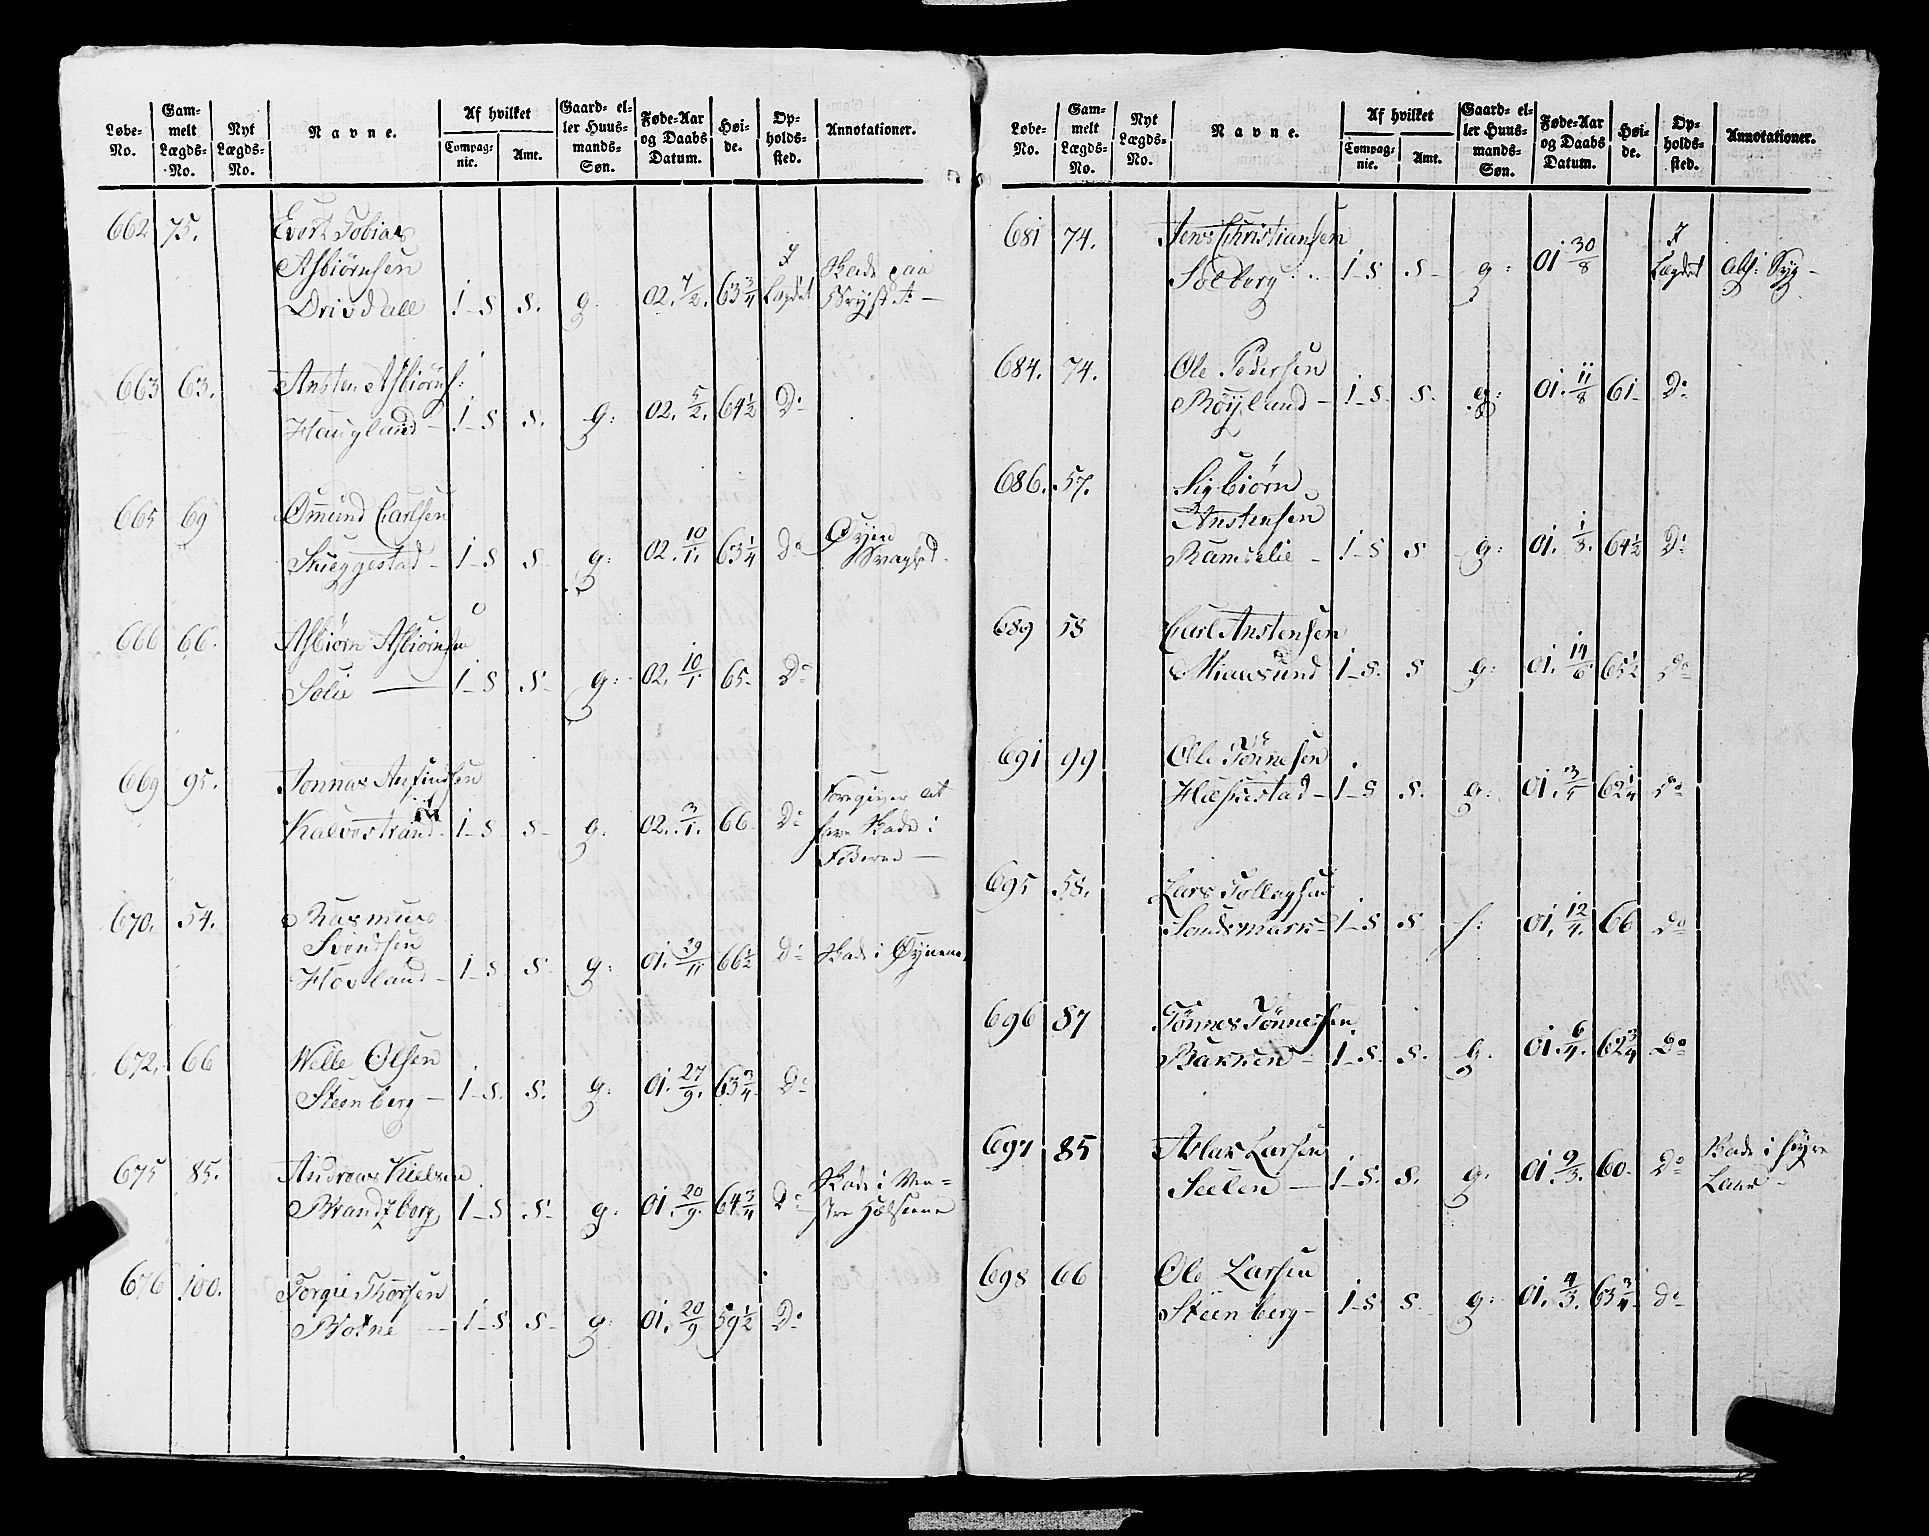 Løbe-No. Gammelt Lægds-No. Nyt Lægds-No. Navne. Af hvilket Compagnie. Amt. Gaard- eller Huusmands-Søn. Føde-Aar og Daabs Datum. Høide. Opholdssted. Annotationer.
662 75. Evert Tobias
Asbiørnsen Skade paa
Drivdall 1-S S. g. 02. 7/2. 63 3/4 I Lægdet Bryst
663 63. Ansten Asbiørns:
Haugland - 1-S S. g: 02. 5/2. 64 1/2 Do
665 69 Ømund Carlsen Øyen
Skieggestad - 1-S S- g: 02. 10/1. 63 1/4 Do Svaghed.
666 66. Asbiørn Asbiørnsen
Solie — 1-S S- g: 02. 10/1 65. Do
669 95. Jonnas Anfindsen Foregiver at
Kalvestrand. 1-S S- g. 02. 3/1. 66 Do have Skade i
Fødderne —
670. 54. Rasmus
Svendsen
Hovland - 1-S S- g: 01. 29/11 66 1/2 Do Skade i Øynene.
672. 66 Velle Olsen
Steenberg - 1-S. S. g: 01. 27/9. 63 3/4 Do
675 85. Andreas Nielsen Skade i Ven=
Brandsberg 1-S S- g: 01. 20/9. 64 3/4 Do stre
676 100. Torgie Thorsen
Botne - 1-S S- g: 01. 20/9 59 1/2 Do
Løbe-No. Gammelt Lægds-No. Nyt Lægds-No. Navne. Af hvilket Compagnie. Amt. Gaard- eller Huusmands-Søn. Føde-Aar og Daabs Datum. Høide. Opholdssted. Annotationer.
681 74. Jens Christiansen
Solberg 1-S S- g: 01 30/8 I Lægdet Syg -
684. 74. Ole Pedersen
Røyland - 1-S. S. g: 01. 11/8 61- Do
686. 57. Sigbiørn
Anstensen
Ramslie - 1-S S g: 01. 1/8. 64 1/2 Do
689 58 Carl Anstensen
Miavesund 1-S. S g: 01. 14/6 65 1/2 Do
691 99 Ole Tønnesen
Hæstad - 1-S S. g. 01. 62 1/4 Do
695 58. Lars Tollaghsen
Sandsmark 1-S S. f: 01. 12/4. 66 Do
696 87 Tønnes Tønnessen
Bakken - 1-S. S. g. 01. 6/4. 62 3/4 Do
697 85 Aslak Larsen Skade i høyre
Seelen — 1-S. S. g. 01. 9/3. 60. Do Laar -
698 66 Ole Larsen
Steenberg - 1-S S. g. 01. 4/3. 63 3/4 Do